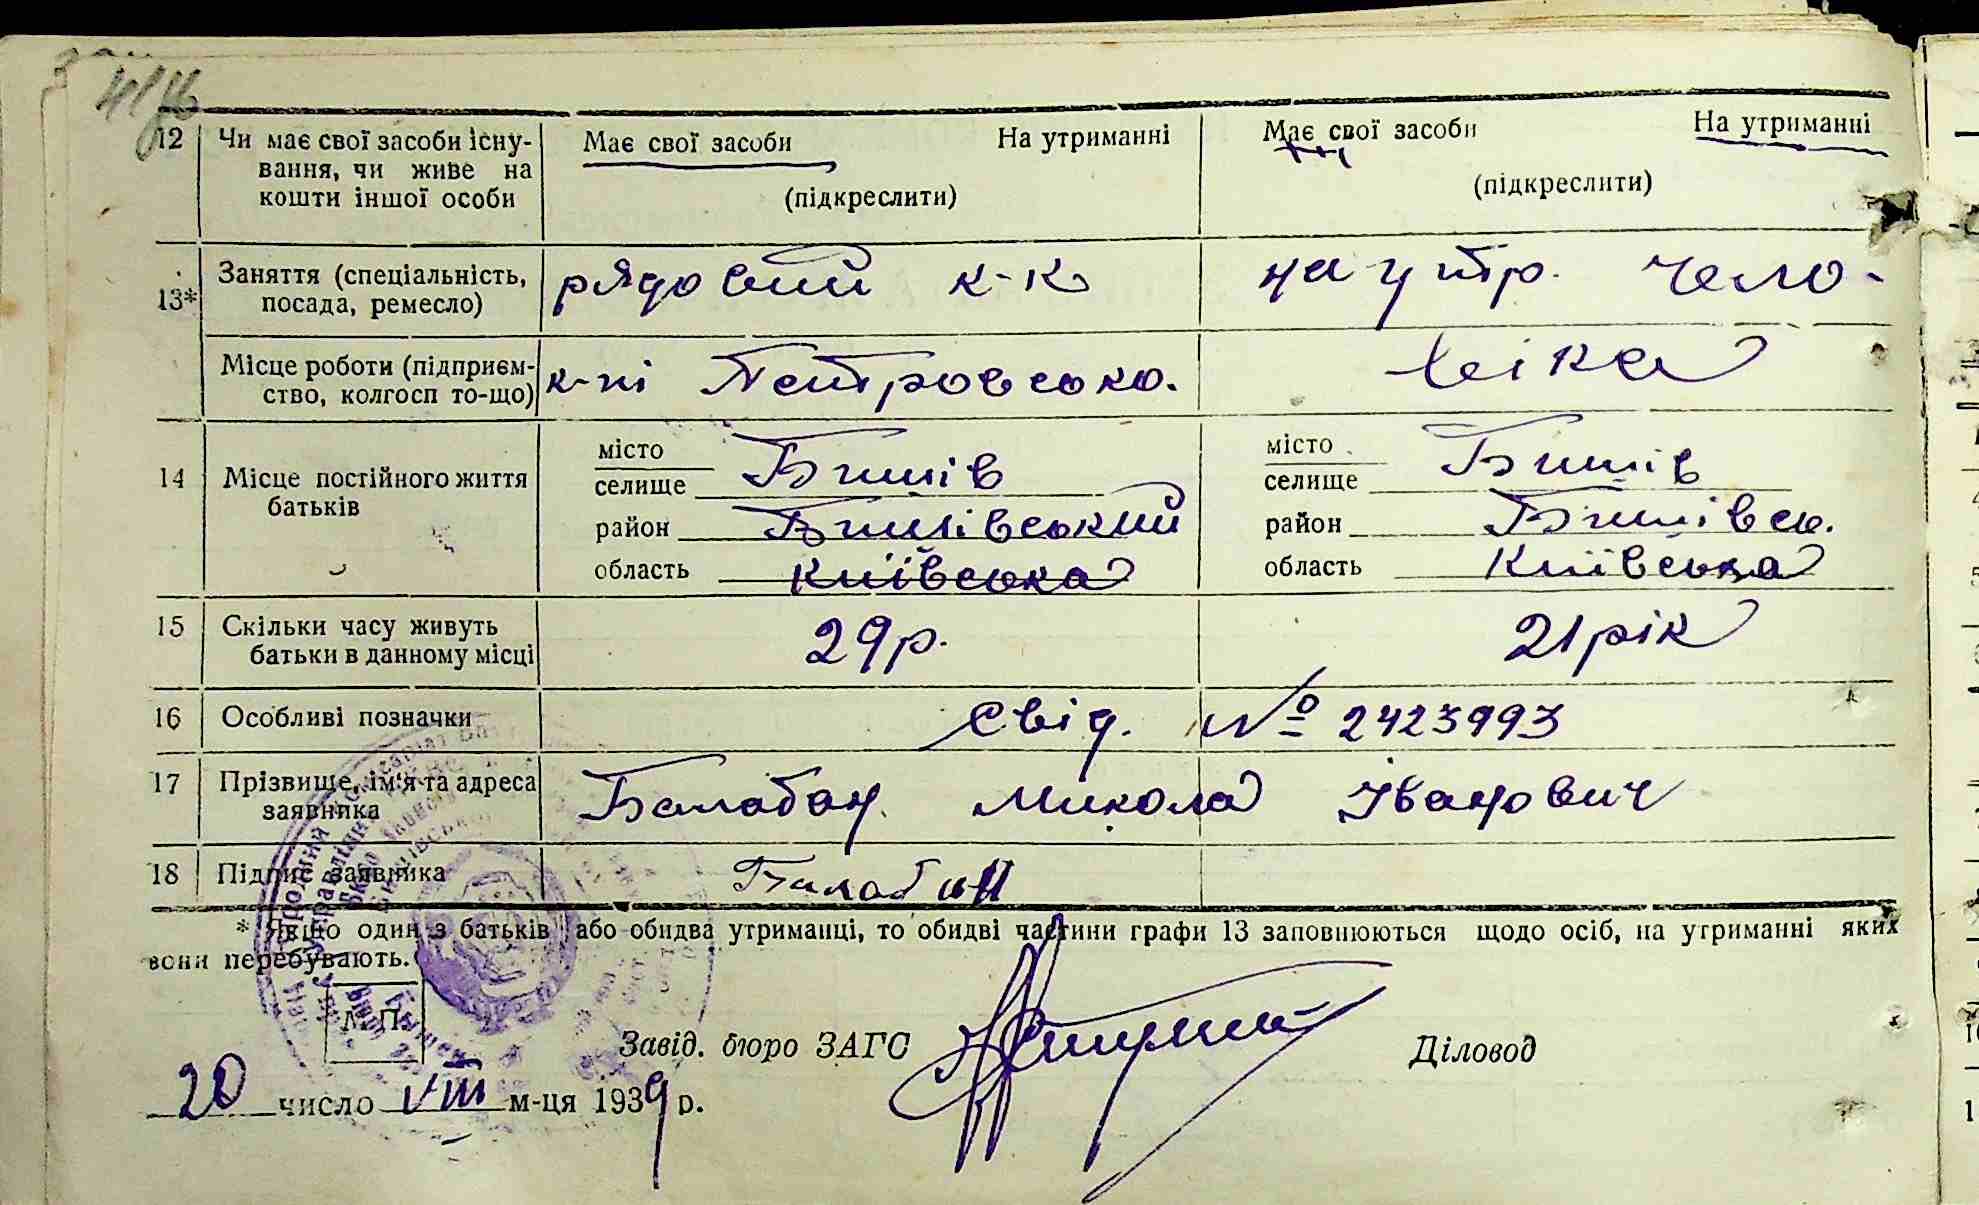 12 Чи має свої засоби існу- Має свої засоби На утриманні Має свої засоби На утриманні
вання, чи живе на (підкреслити) (підкреслити)
кошти іншої особи
13* Заняття (спеціальність, рядовий к-к на утр. чело-
посада, ремесло)
Місце роботи (підприєм- к-пі Петровсько. віка
ство, колгосп то-що)
14 Місце постійного життя батьків
місто Бишів місто Бишів
селище селище
район Бишівський район Бишівсь.
область Київська область Київська
15 Скільки часу живуть 29 р. 21 рік
батьки в данному місці
16 Особливі позначки Свід. № 2423993
17 Прізвище, ім'я та адреса Балабан Микола Іванович
заявника
18 Підпис заявника Балабан
* Якщо один з батьків або обидва утриманці, то обидві частини графи 13 заповнюються щодо осіб, на утриманні яких
вони перебувають.
М. П.
Завід. бюро ЗАГС Діловод
20 число VIII м-ця 1939 р.